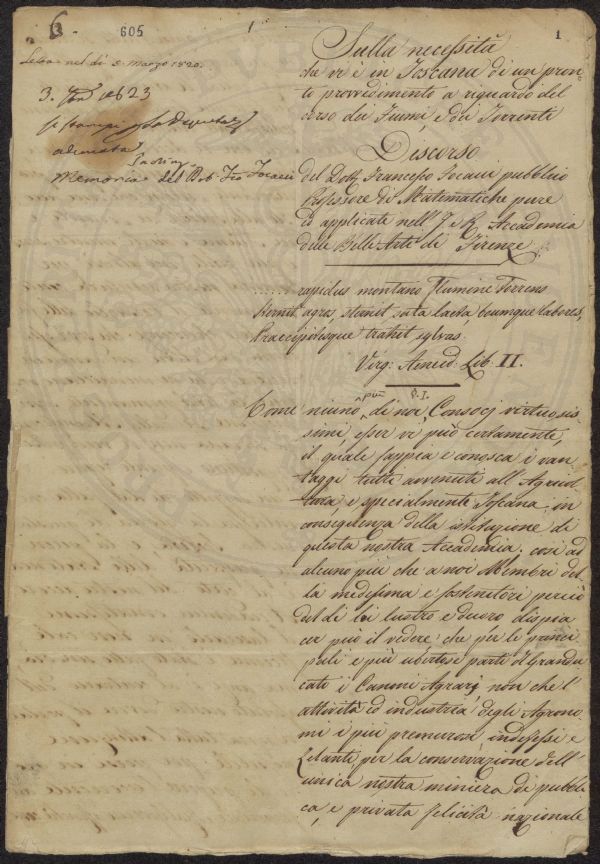 6
605
1
1
Letta nel dì 5. Marzo 1820.
3.
adunata
Memoria del Dott Fco Focacci
Sulla necessità
che vi è in Toscana di un pron-
to provvedimento a riguardo del
corso dei Fiumi, e dei Torrenti
Discorso
del Dott. Francesco Focacci pubblico
Professore di Matematiche pure
ed applicate nell' I. e R. Accademia
delle Belle Arti di Firenze.
........ rapidus montano flumine Torrens
Sternit agros, sternit sata laeta, boumque labores,
Praecipitesque trahit sylvas.
Virg: Aeneid: Lib: II.
§. I.
Come niuno più di noi, Consocj virtuosis-
simi, esser vi può certamente,
il quale sappia e conosca i van-
taggi tutti avvenuti all' Agricol-
tura e specialmente Toscana in
conseguenza della istituzione di
questa nostra Accademia; così ad
alcuno più che a noi Membri del-
la medesima e sostenitori perciò
del di lei lustro e decoro dispia
cer può il vedere che per le princi
pali e più ubertose parti del Grandu
cato i Canoni Agrarj non che l'
attività ed industria degli Agrono-
mi i più premurosi indefessi e
zelanti per la conservazione dell'
unica nostra miniera di pubbli
ca, e privata felicità nazionale